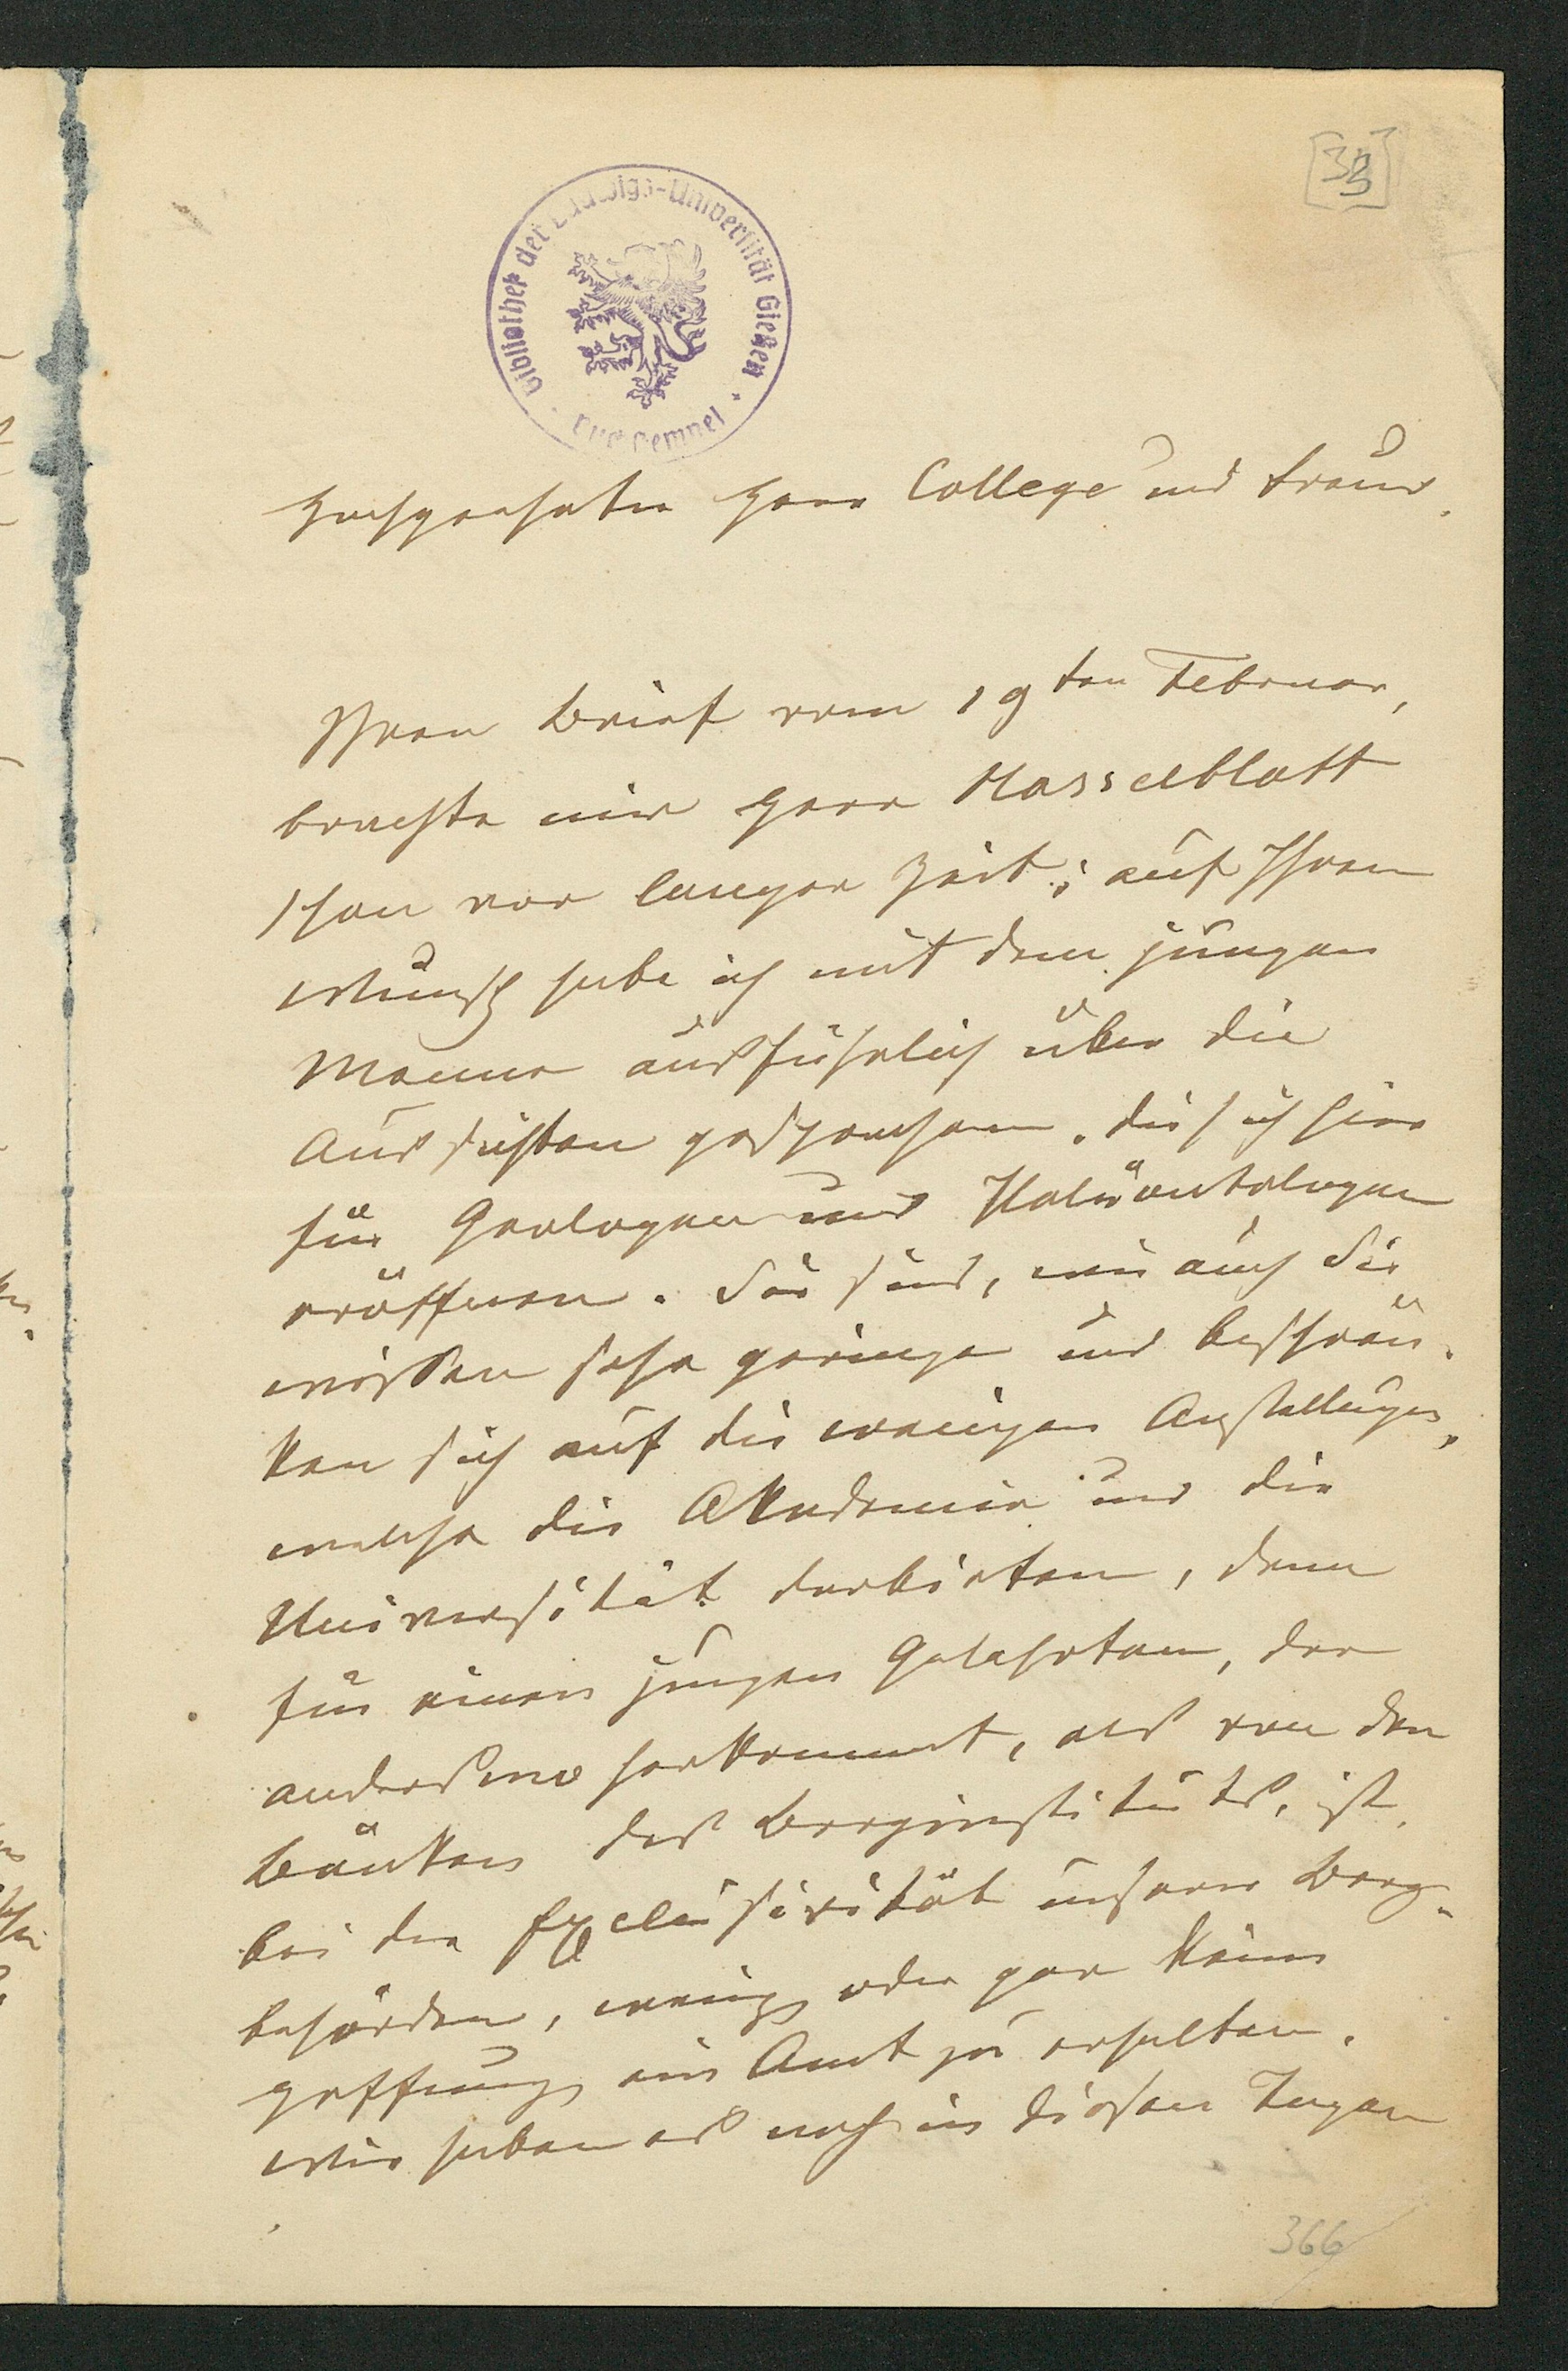 33
Bibliothek der Ludwigs-Universität Gießen
Hochgeehrter Herr College und Freund.
Ihren Brief vom 19ten Februar,
brachte mir Herr Hasselblatt
schon vor langer Zeit; auf Ihren
Wunsch habe ich mit dem jungen
Manne ausführlich über die
Aussichten gesprochen, die sich hier
für Geologen und Paläontologen
eröffnen. Sie sind, wie auch Sie
wissen sehr geringe und beschrän-
ken sich auf die wenigen Anstellungen,
welche die Akademie und die
Universität darbieten, denn
für einen jungen Gelehrten, der
anderswo herkommt, als von den
Bänken des Berginstituts, ist,
bei der Exclusivität unserer Berg-
behörden, wenig oder gar keine
Hoffnung ein Amt zu erhalten.
Wir haben es noch in diesen Tagen
366